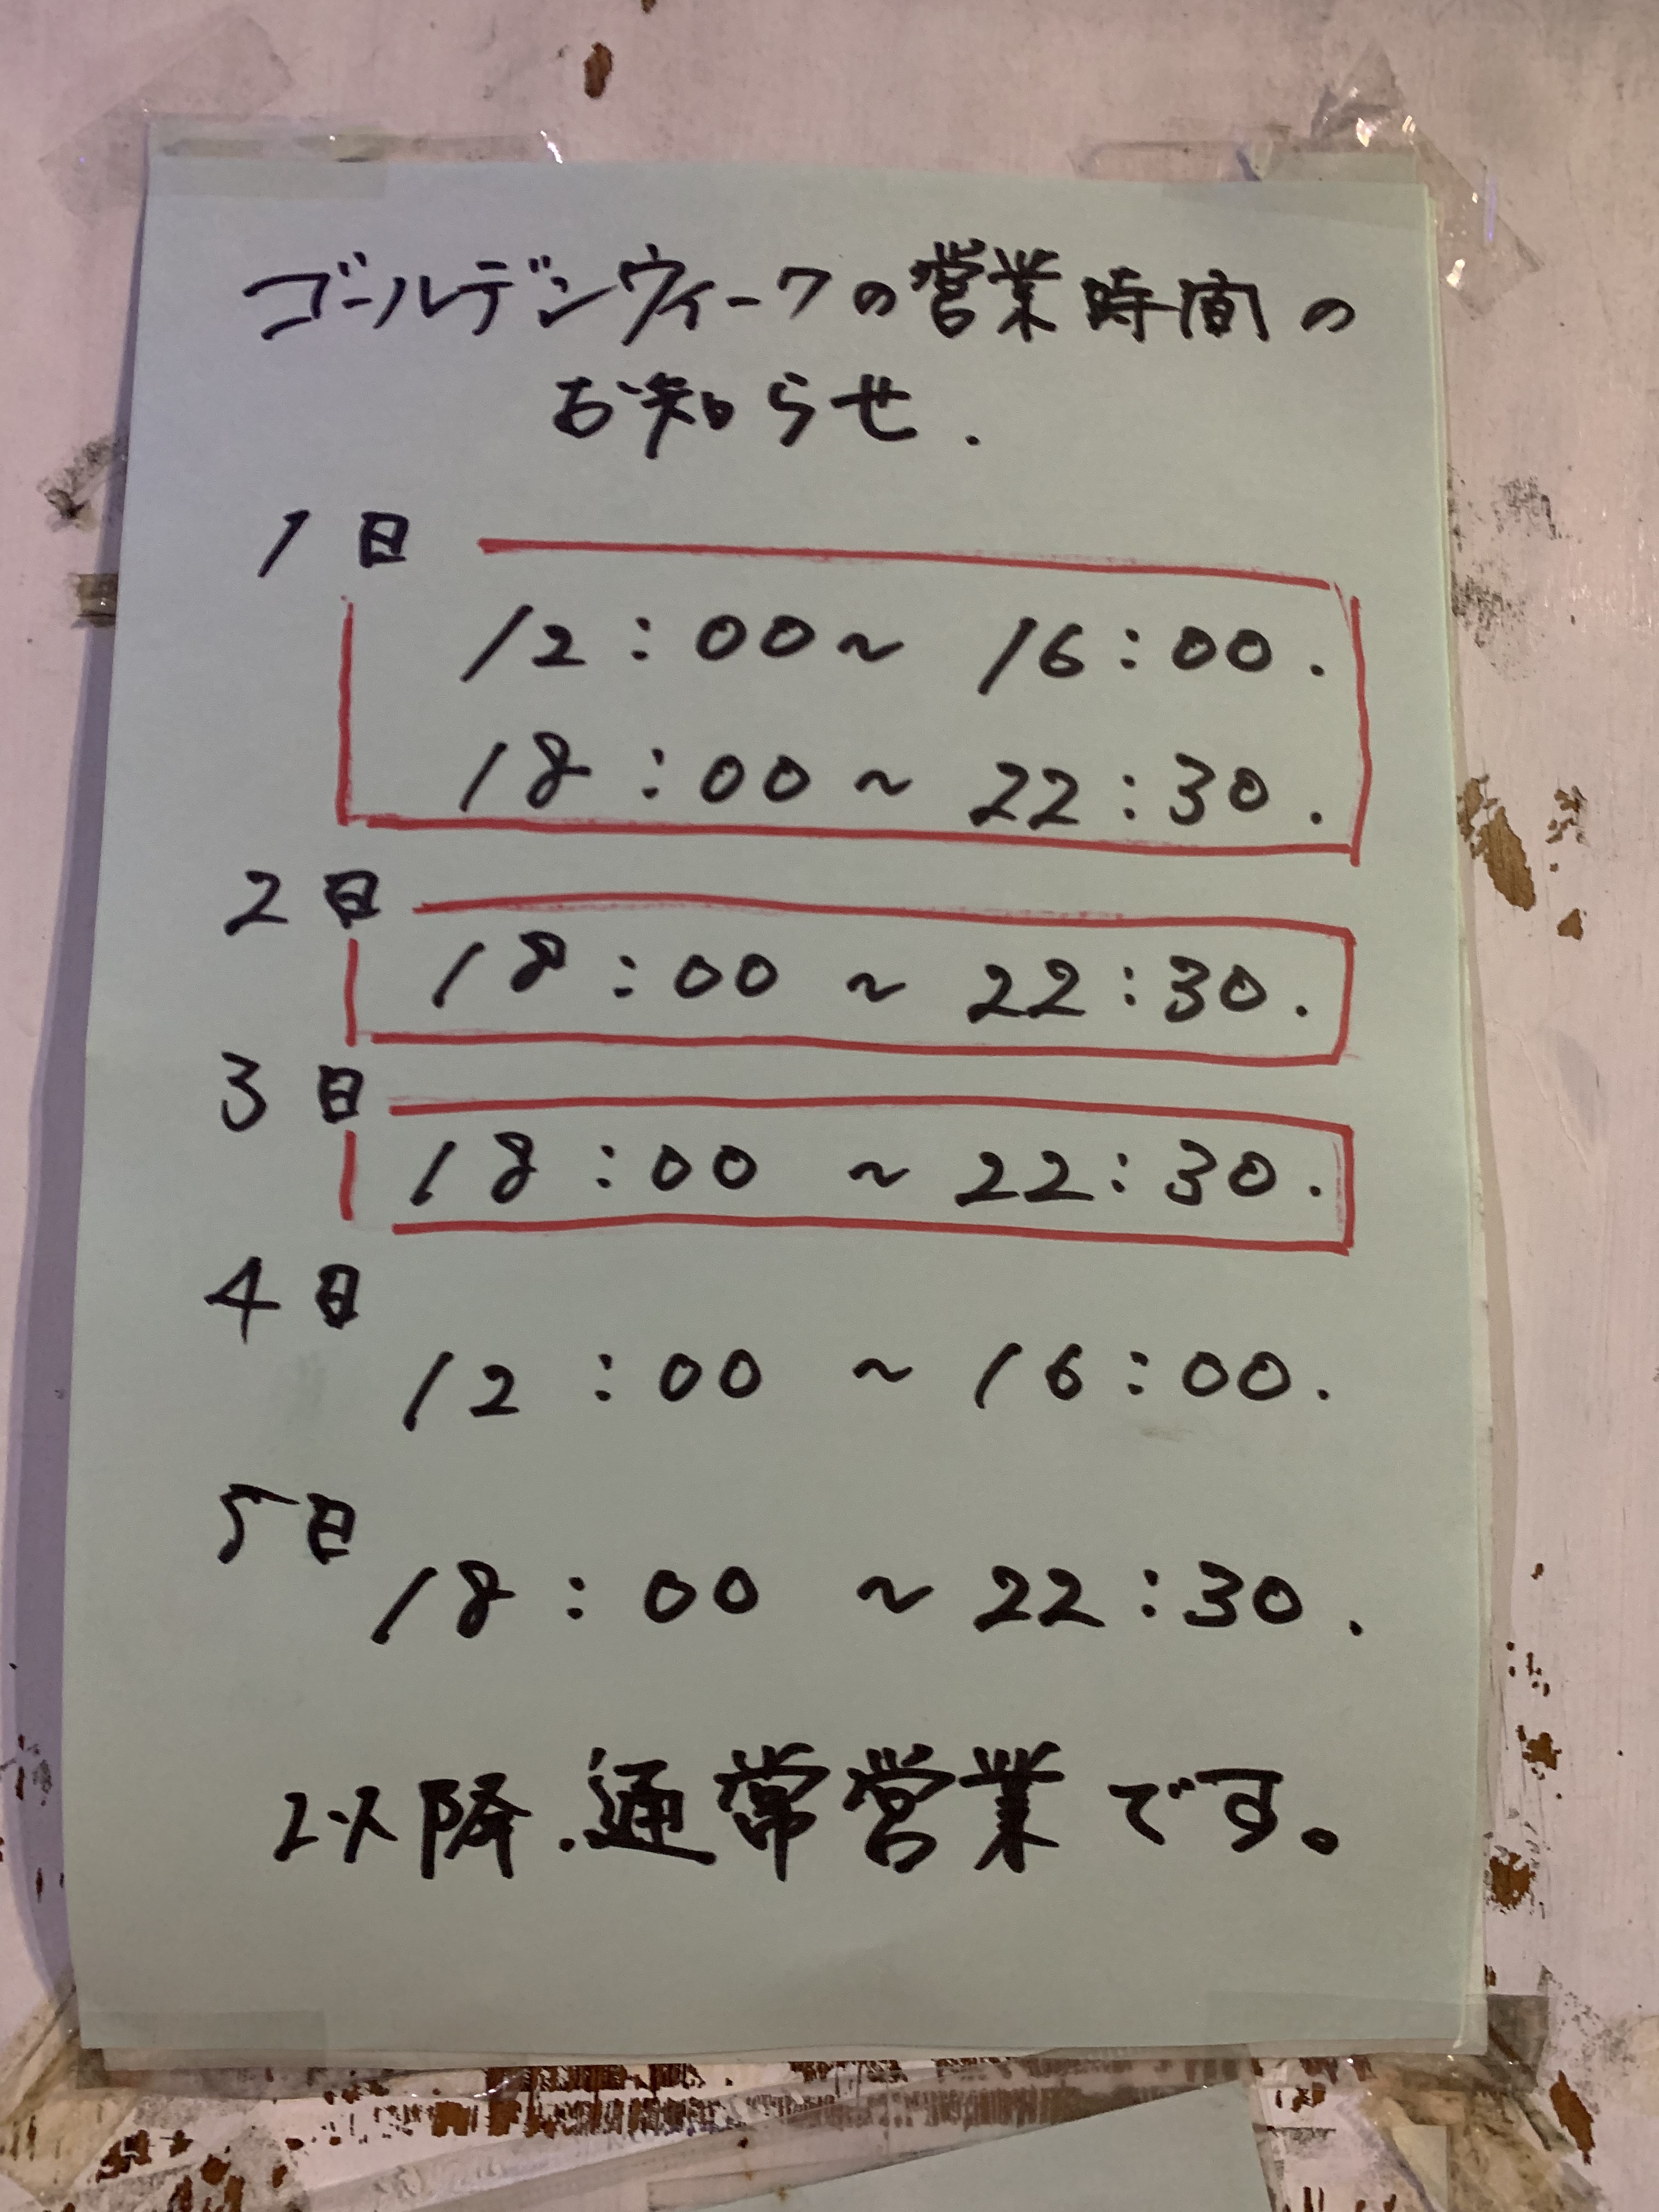 ゴールデンウィークの営業時間の
お知らせ.
1日
12:00~16:00.
18:00~22:30.
2日
18:00~22:30.
3日
18:00~22:30.
4日
12:00~16:00.
5日
18:00~22:30.
以降.通常営業です。